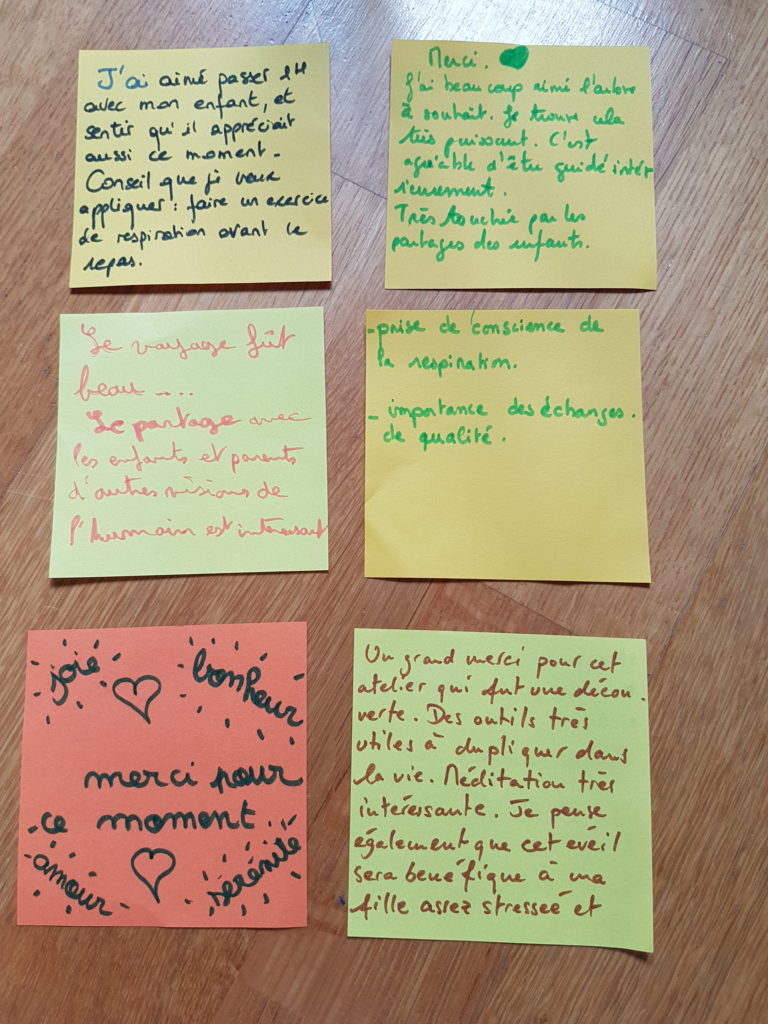 J'ai aimé passer 1H
avec mon enfant, et
sentir qu'il appréciait
aussi ce moment.
Conseil que je veux
appliquer : faire un exercice
de respiration avant le
repas.
Merci.
J'ai beaucoup aimé l'arbre
à souhait. Je trouve cela
très puissant. C'est
agréable d'être guidé intér
ieurement.
Très touchée par les
partages des enfants.
Le voyage fût
beau ....
Le partage avec
les enfants et parents
d'autres visions de
l'humain est intéressant
- prise de conscience de
la respiration.
- importance des échanges.
de qualité.
joie
bonheur
merci pour
ce moment.
amour
sérénité
Un grand merci pour cet
atelier qui fut une décou-
verte. Des outils très
utiles à dupliquer dans
la vie. Méditation très
intéressante. Je pense
également que cet eveil
sera benéfique à ma
fille assez stresseé et